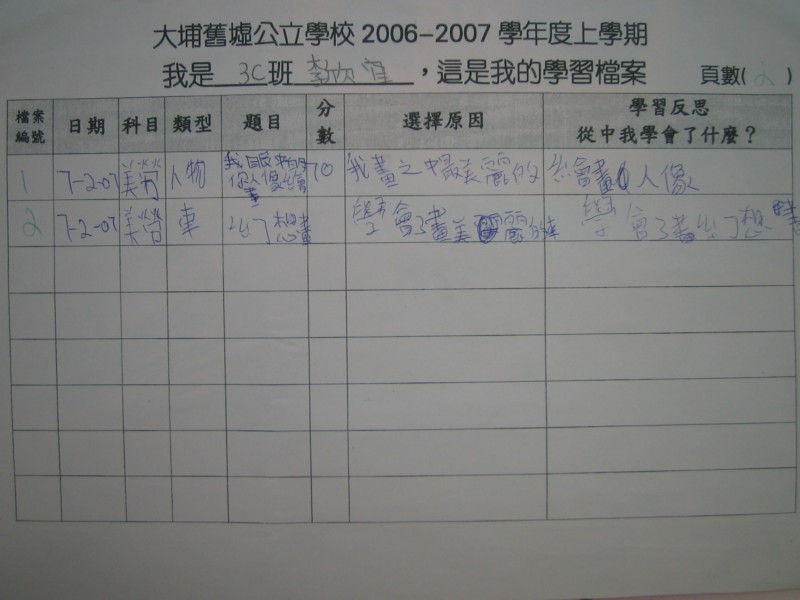 大埔舊墟公立學校 2006-2007 學年度上學期
我是 3C班 李欣宜 ，這是我的學習檔案 頁數( 2 )
檔案編號 日期 科目 類型 題目 分數 選擇原因 學習反思 從中我學會了什麼？
1 7-2-07 美勞 人物 我眼中的你人像繪畫 70 我畫之中最美麗的 繪畫人像
2 7-2-07 美勞 車 學會了畫美麗的車 學會了畫